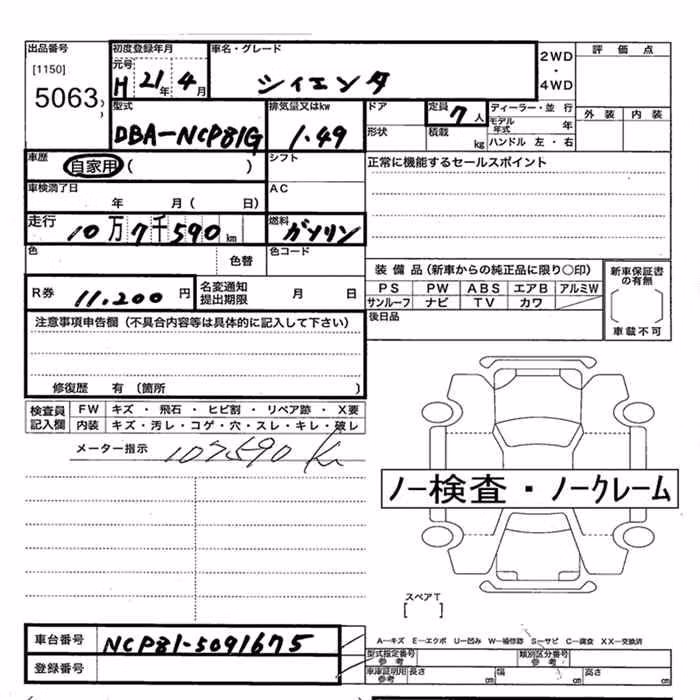 出品番号 初度登録年月 車名・グレード 2WD・4WD 評価点
[1150] 元号
5063 H 21年 4月 シイエンタ
外装 内装
型式 排気量又はkw ドア 定員 7人 ディーラー・並行
DBA-NCP81G 1.49 形状 積載 kg モデル年式 年
ハンドル 左・右
車歴 自家用 ( ) シフト 正常に機能するセールスポイント
車検満了日 AC
年 月( 日)
走行 10万7千590km 燃料 ガソリン
色 色替 色コード
装備品(新車からの純正品に限り○印) 新車保証書の有無
R券 11.200円 名変通知提出期限 月 日 PS PW ABS エアB アルミW
サンルーフ ナビ TV カワ
( ) 車載不可
注意事項申告欄(不具合内容等は具体的に記入して下さい) 後日品
修復歴 有(箇所 )
検査員記入欄 FW キズ・飛石・ヒビ割・リペア跡・X要
内装 キズ・汚レ・コゲ・穴・スレ・キレ・破レ
メーター指示 107590 K
ノー検査・ノークレーム
スペアT
[ ]
車台番号 NCP81-5091675 A−キズ E−エクボ U−凹み W−補修跡 S−サビ C−腐食 XX−交換済
登録番号 型式指定番号 参考 類別区分番号 参考
車庫証明用 参考 長さ cm 幅 cm 高さ cm